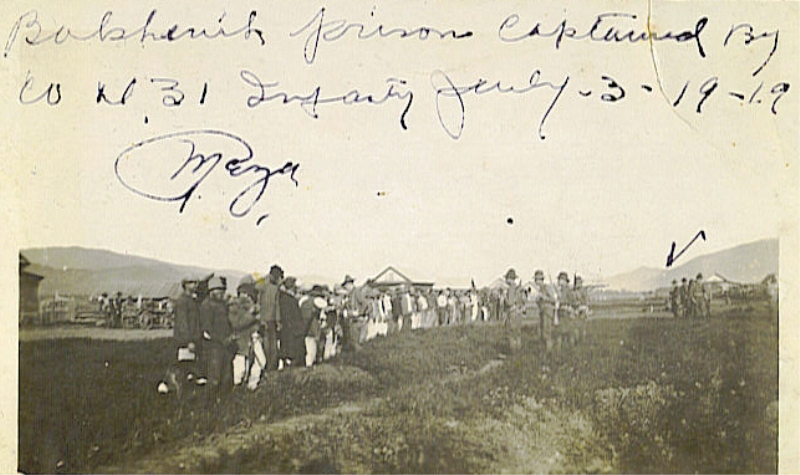 Bolshevik prison captured By
CO M, 31 Infanty July-3-19-19